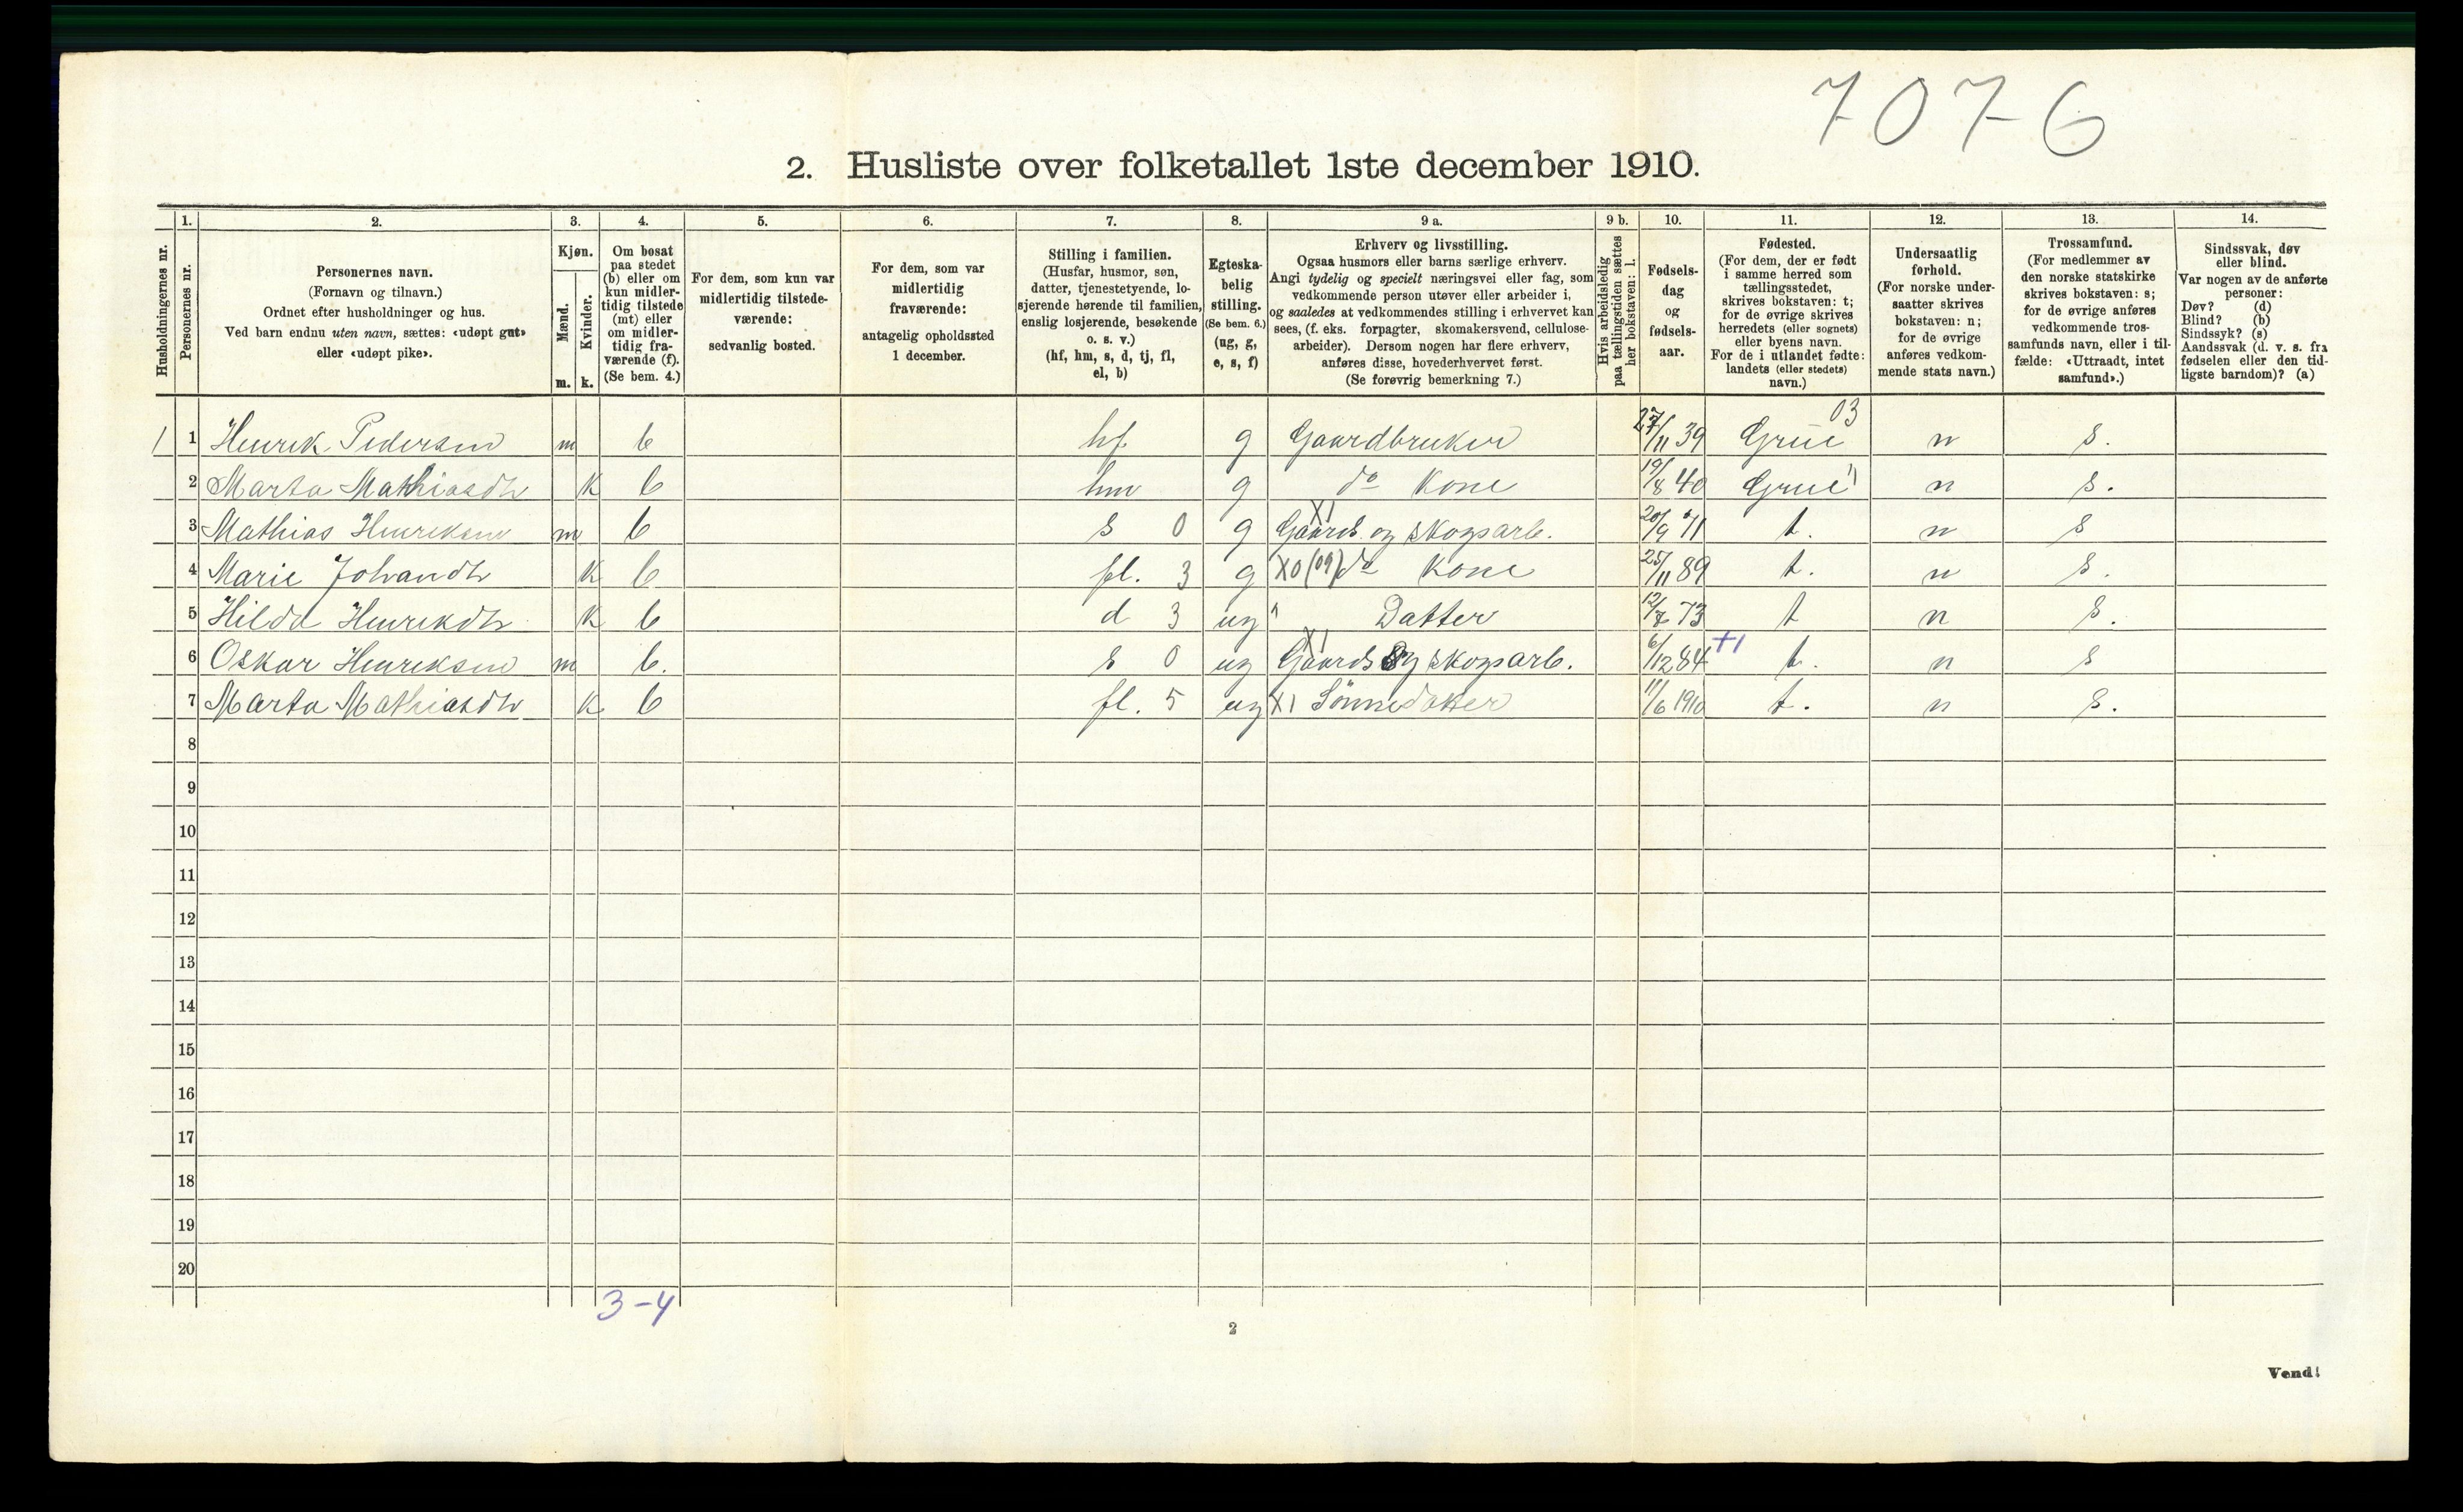 7076
2. Husliste over folketallet 1ste december 1910.
Husholdningernes nr.
1. Personernes nr.
2. Personernes navn. (Fornavn og tilnavn.) Ordnet efter husholdninger og hus. Ved barn endnu uten navn, sættes: «udøpt gut» eller «udøpt pike».
3. Kjøn. Mænd. m. Kvinder. k.
4. Om bosat paa stedet (b) eller om kun midler- tidig tilstede (mt) eller om midler- tidig fra- værende (f). (Se bem. 4.)
5. For dem, som kun var midlertidig tilstede- værende: sedvanlig bosted.
6. For dem, som var midlertidig fraværende: antagelig opholdssted 1 december.
7. Stilling i familien. (Husfar, husmor, søn, datter, tjenestetyende, lo- sjerende hørende til familien, enslig losjerende, besøkende o. s. v.) (hf, hm, s, d, tj, fl, el, b)
8. Egteska- belig stilling. (Se bem. 6.) (ug, g, e, s, f)
9 a. Erhverv og livsstilling. Ogsaa husmors eller barns særlige erhverv. Angi tydelig og specielt næringsvei eller fag, som vedkommende person utøver eller arbeider i, og saaledes at vedkommendes stilling i erhvervet kan sees, (f. eks. forpagter, skomakersvend, cellulose- arbeider). Dersom nogen har flere erhverv, anføres disse, hovederhvervet først. (Se forøvrig bemerkning 7.)
9 b. Hvis arbeidsledig paa tællingstiden sættes her bokstaven: l.
10. Fødsels- dag og fødsels- aar.
11. Fødested. (For dem, der er født i samme herred som tællingsstedet, skrives bokstaven: t; for de øvrige skrives herredets (eller sognets) eller byens navn. For de i utlandet fødte: landets (eller stedets) navn.)
12. Undersaatlig forhold. (For norske under- saatter skrives bokstaven: n; for de øvrige anføres vedkom- mende stats navn.)
13. Trossamfund. (For medlemmer av den norske statskirke skrives bokstaven: s; for de øvrige anføres vedkommende tros- samfunds navn, eller i til- fælde: «Uttraadt, intet samfund».)
14. Sindssvak, døv eller blind. Var nogen av de anførte personer: Døv? (d) Blind? (b) Sindssyk? (s) Aandssvak (d. v. s. fra fødselen eller den tid- ligste barndom)? (a)
03
1 1 Henrik Pedersen m b hf g Gaardbruker 27/11 39 Grue n s.
2 Marta Mathiasdtr k b hm g do Kone 19/8 40 Grue 1) n s.
X1
3 Mathias Henriksen m b s 0 g Gaards og skogsarb. 20/9 71 t. n s
4 Marie Johandtr k b fl. 3 g X0 (09) do Kone 25/11 89 t. n s.
5 Hilda Henrikdtr k b d 3 ug " Datter 12/7 73 t n s.
X1 +1
6 Oskar Henriksen m b. s 0 ug Gaards og skogsarb. 6/12 84 t. n s
7 Marta Mathiasdtr k b fl. 5 ug X1 Sønnedatter 11/6 1910 t. n s.
8
9
10
11
12
13
14
15
16
17
18
19
20
3-4
2
Vend!